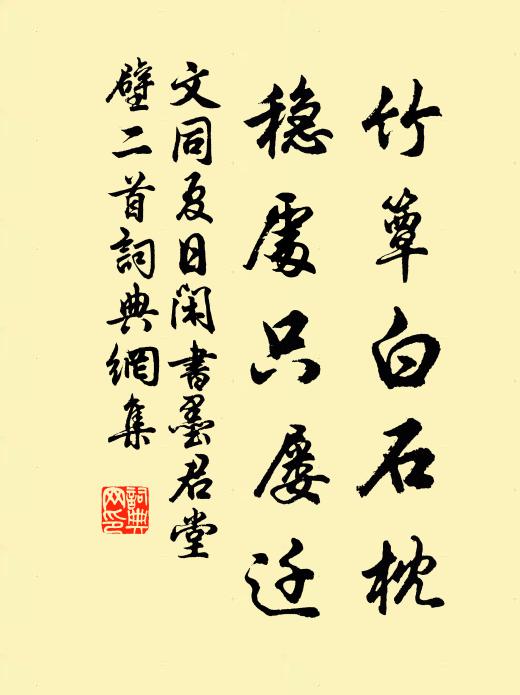 竹簟白石枕
穏處只屡迁
文同夏日闲書墨君堂
壁二首詞典網集
詞典網印